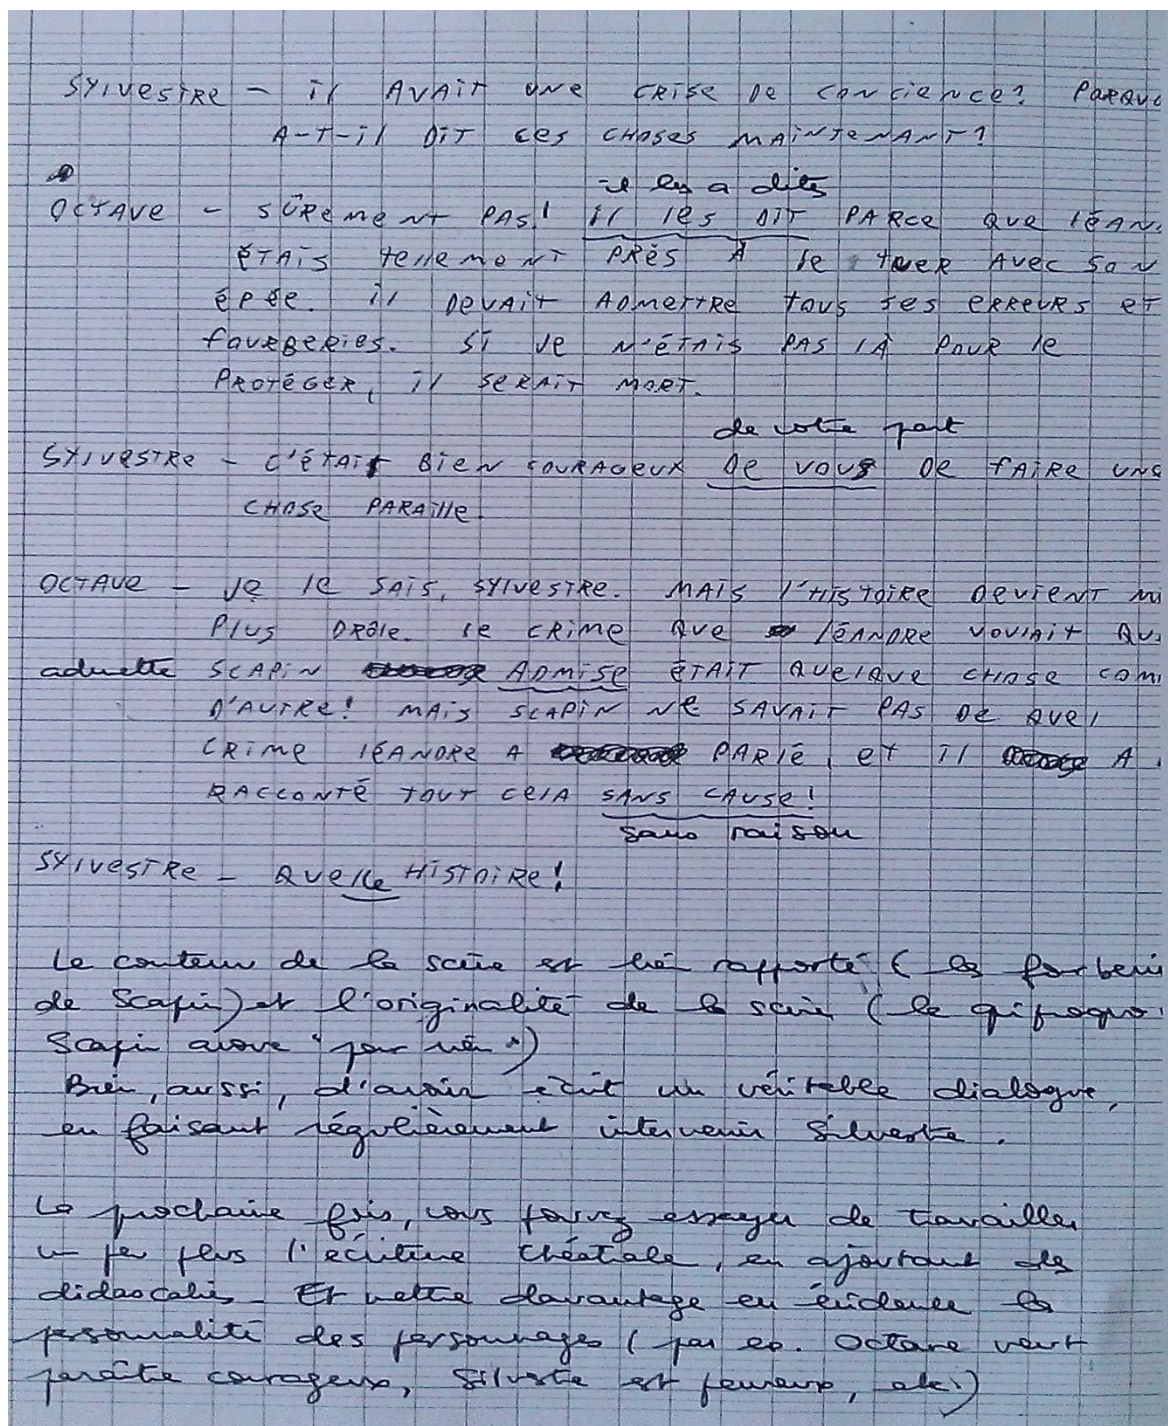 SYLVESTRE - IL AVAIT UNE CRISE DE CONCIENCE? PARQUO
A-T-IL DIT CES CHOSES MAINTENANT?
il les a dites
OCTAVE - SÛREMENT PAS! IL LES DIT PARCE QUE LÉAN
ÉTAIS TELLEMENT PRÈS À LE TUER AVEC SON
ÉPÉE. IL DEVAIT ADMETTRE TOUS SES ERREURS ET
FOURBERIES. SI JE N'ÉTAIS PAS LÀ POUR LE
PROTÉGER, IL SERAIT MORT.
de votre part
SYLVESTRE - C'ÉTAIT BIEN COURAGEUX DE VOUS DE FAIRE UNE
CHOSE PARAILLE.
OCTAVE - JE LE SAIS, SYLVESTRE. MAIS L'HISTOIRE DEVIENT
PLUS DRÔLE. LE CRIME QUE LÉANDRE VOULAIT QU
admette SCAPIN ADMISE ÉTAIT QUELQUE CHOSE COM
D'AUTRE! MAIS SCAPIN NE SAVAIT PAS DE QUEL
CRIME LÉANDRE A PARLÉ, ET IL A
RACCONTÉ TOUT CELA SANS CAUSE!
sans raison
SYLVESTRE - QUELLE HISTOIRE!
Le contenu de la scène est bien rapporté (les fourberi
de Scapin) et l'originalité de la scène (le quiproquo
Scapin avoue "pour rien")
Bien, aussi, d'avoir écrit un véritable dialogue,
en faisant régulièrement intervenir Silvestre.
La prochaine fois, vous pouvez essayer de travailler
un peu plus l'écriture théâtrale, en ajoutant des
didascalies. Et mettre davantage en évidence la
personnalité des personnages (par ex. Octave veut
paraître courageux, Silvestre est peureux, etc.)